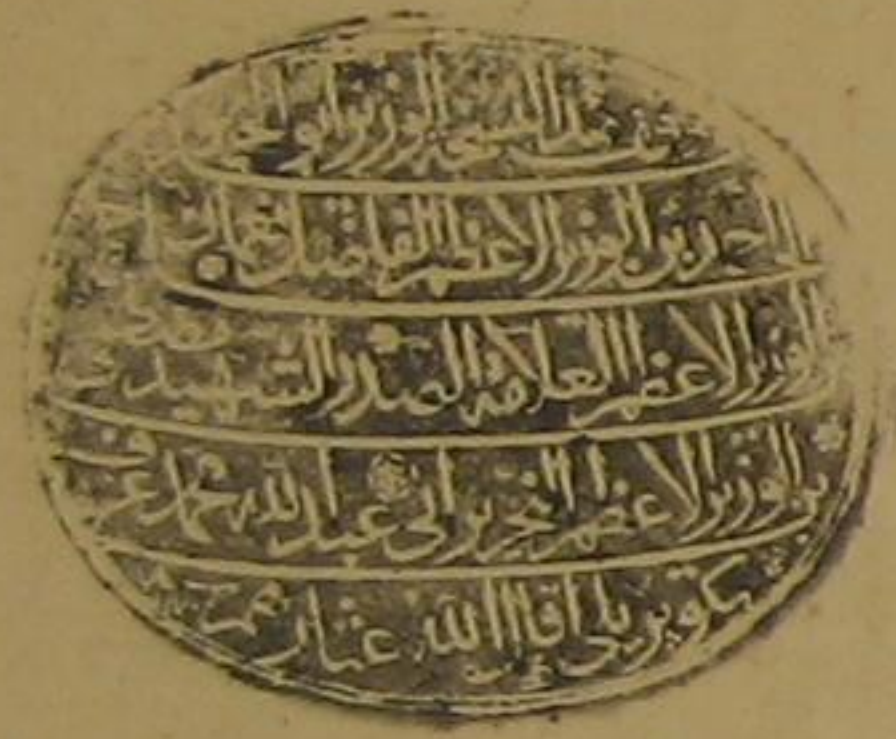 وقف هذه النسخة الوزير أبو الخير
أحمد بن الوزير الأعظم الفاضل نعمان بن
الوزير الأعظم العلامة الصدر الشهيد مصطفى
بن الوزير الأعظم النحرير أبي عبد الله محمد عرف
بكوپريلي أقال الله عثارهم